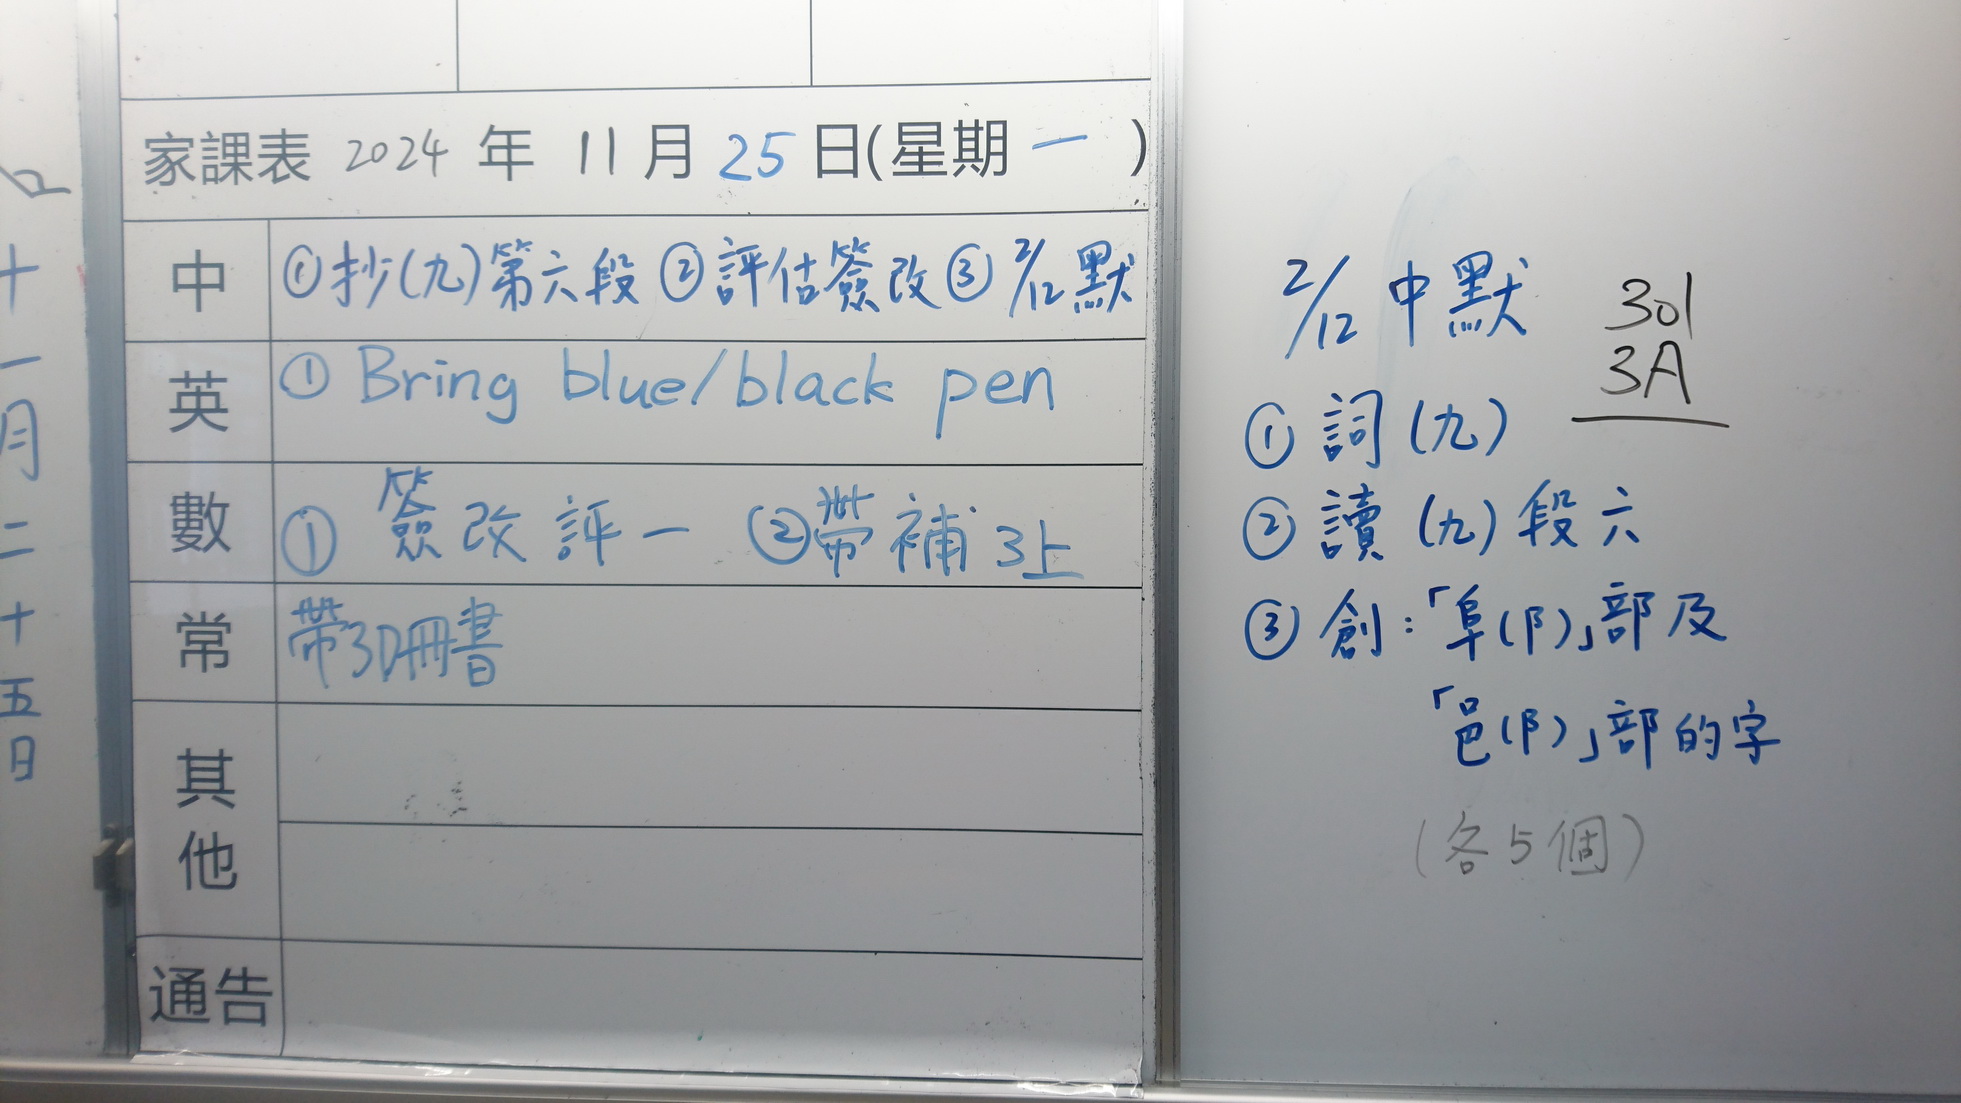 十一月二十五日
家課表 2024 年 11 月 25 日(星期一)
中 ①抄(九)第六段 ②評估簽改 ③2/12默
英 ① Bring blue/black pen
數 ① 簽改評一 ②帶補3上
常 帶3D冊書
其他
通告
2/12 中默
301
3A
① 詞(九)
② 讀(九)段六
③ 創:「阜(阝)」部及
「邑(阝)」部的字
(各5個)